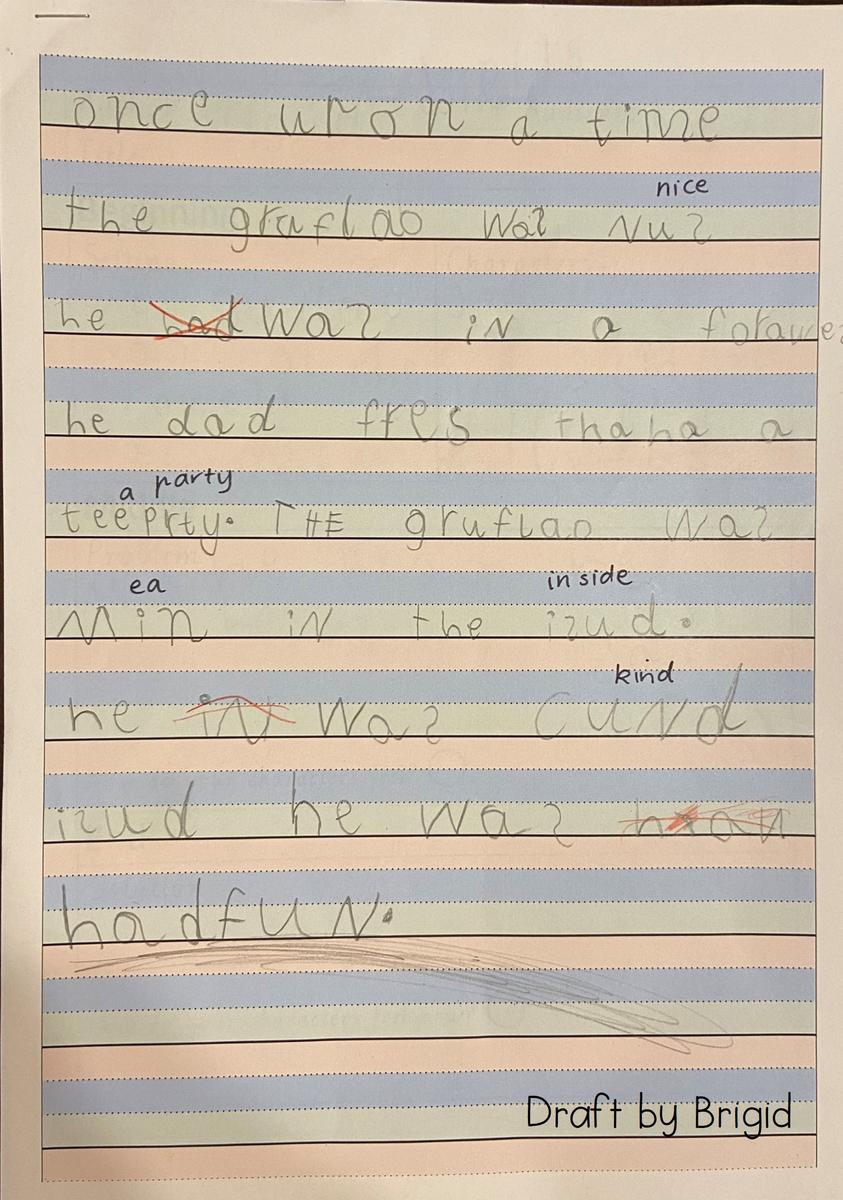 once uron a time
nice
the gruflao was Nus
he had was iN a forawes
he dad fres thaha a
a party
teeprty. THE gruflao was
ea inside
Min iN the izud.
kind
he iN was cuNd
izud he was
hadfuN.
Draft by Brigid